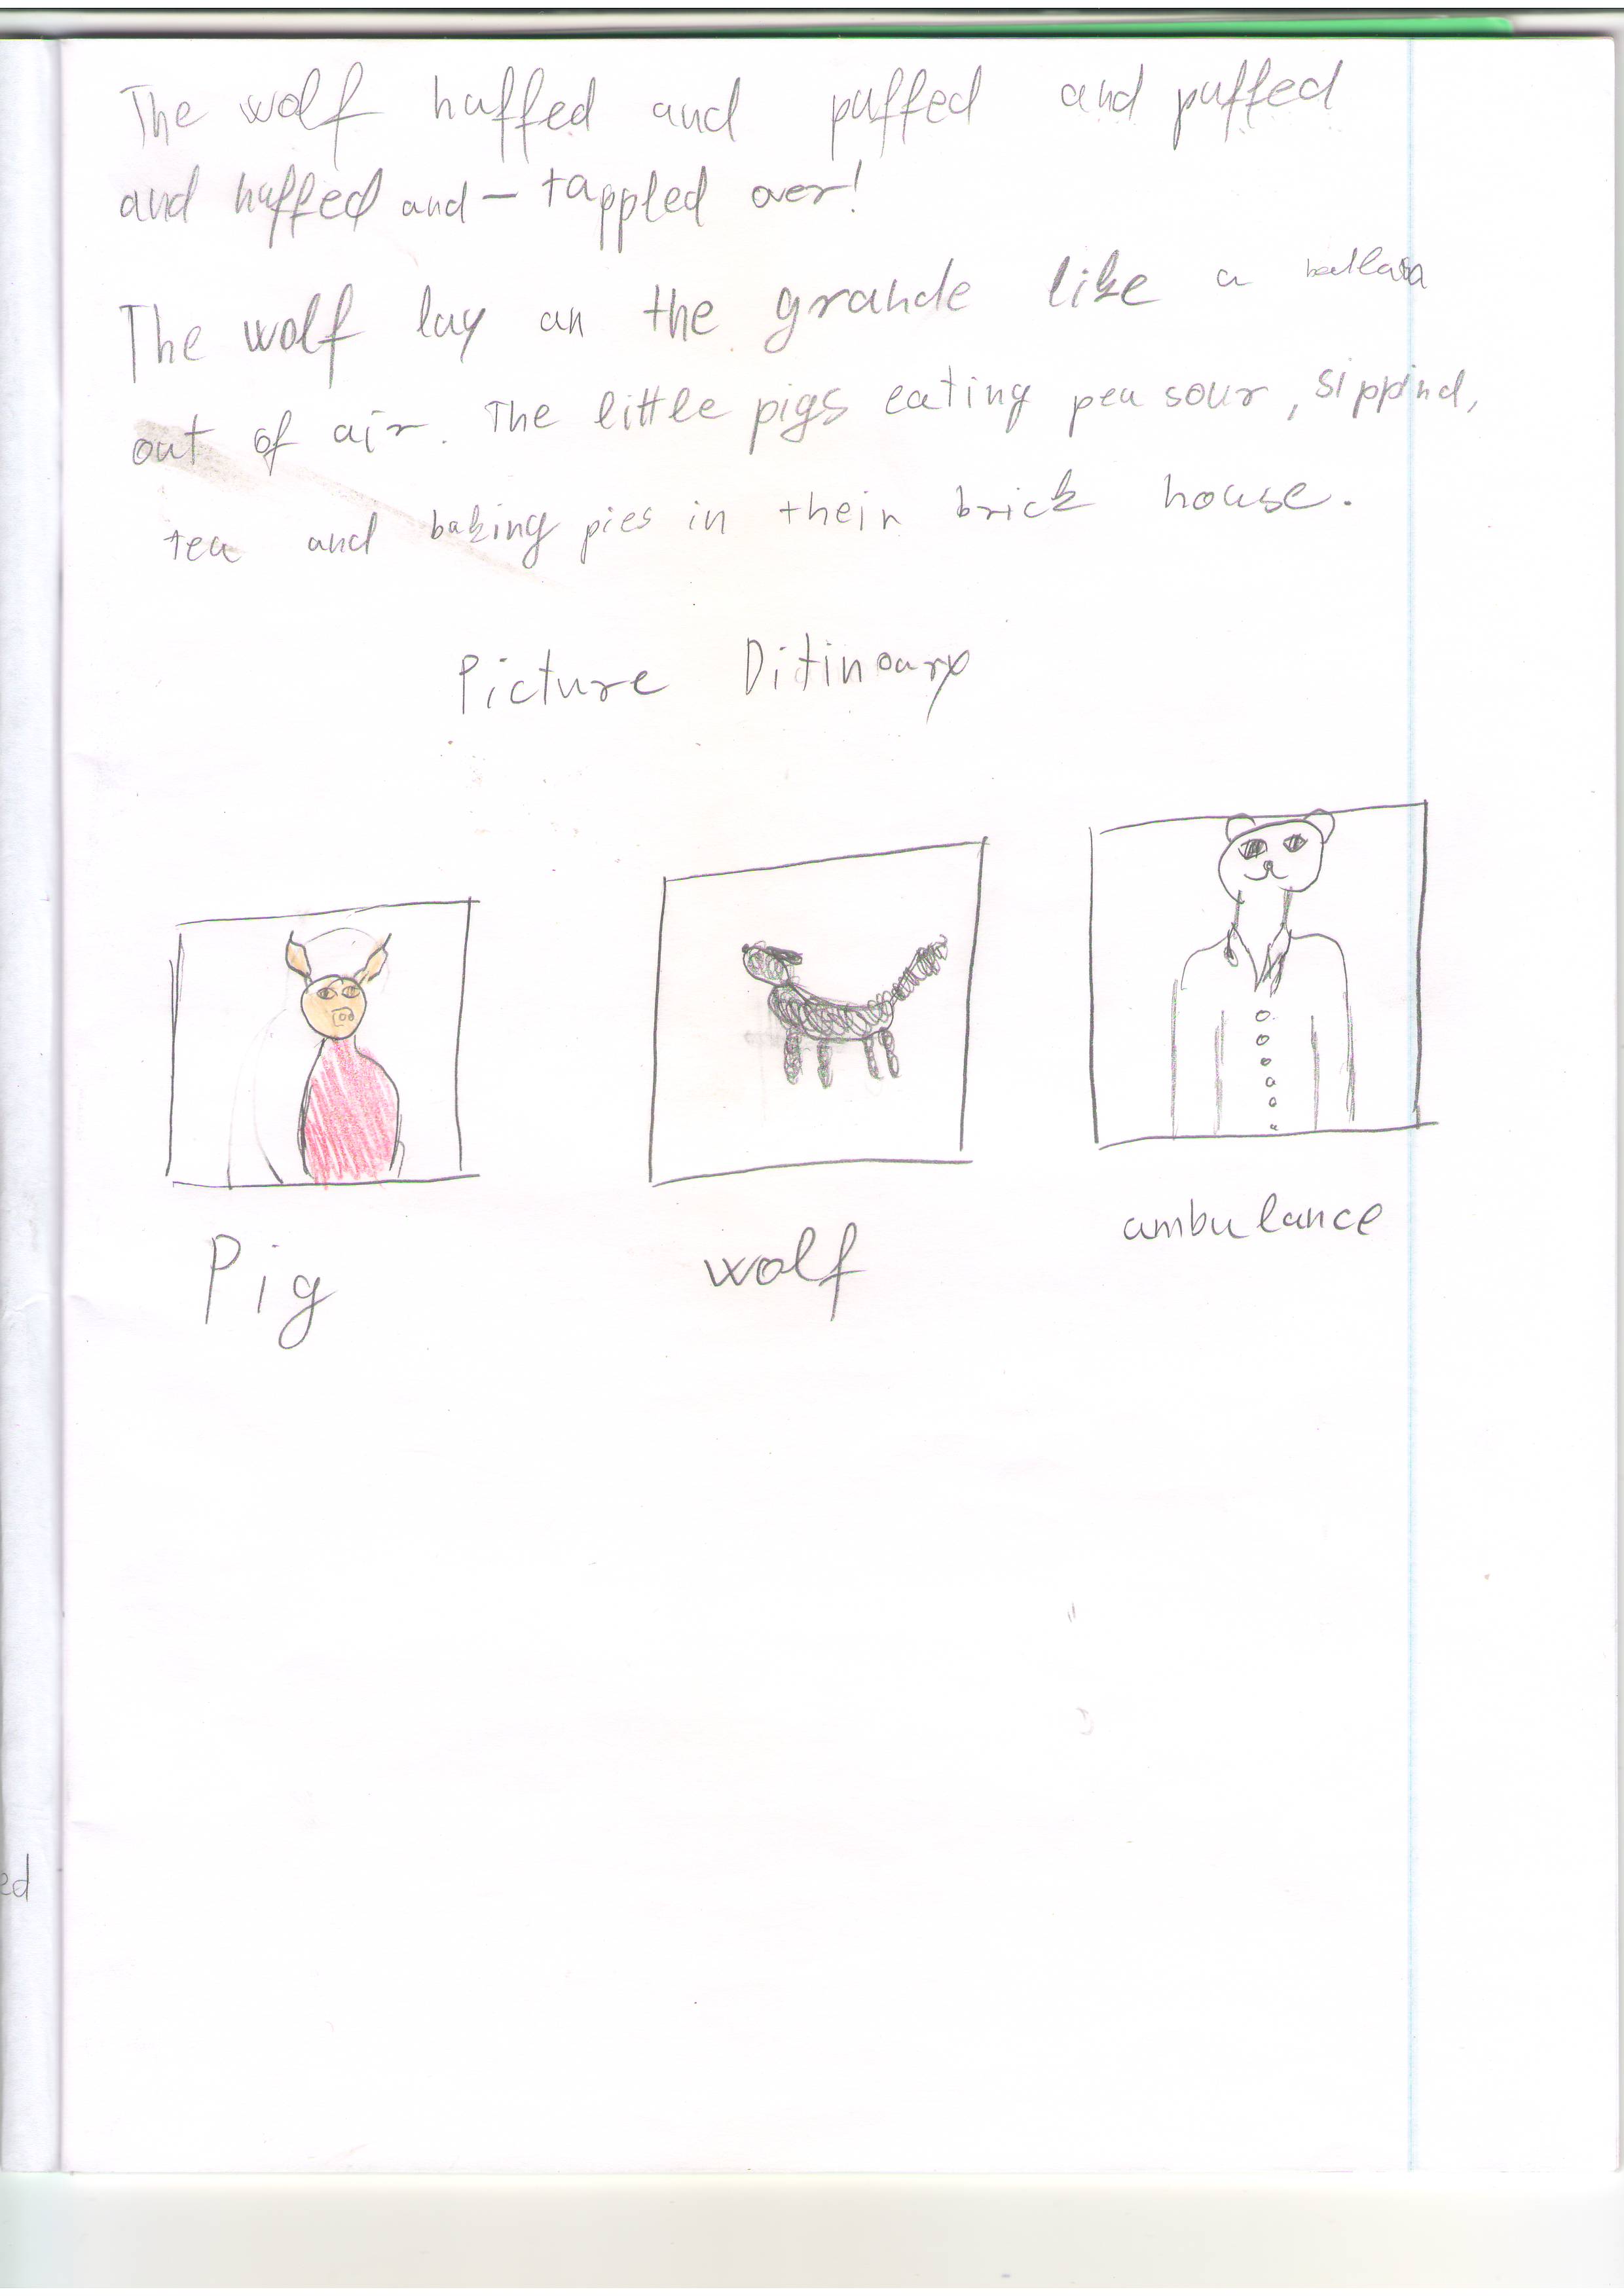 The wolf huffed and puffed and puffed
and huffed and – tappled over!
The wolf lay an the grande like a
out of air. The little pigs eating pea sour, sippind,
tea and baking pies in their brick house.
Picture Ditinoary
Pig
wolf
ambulance
ed